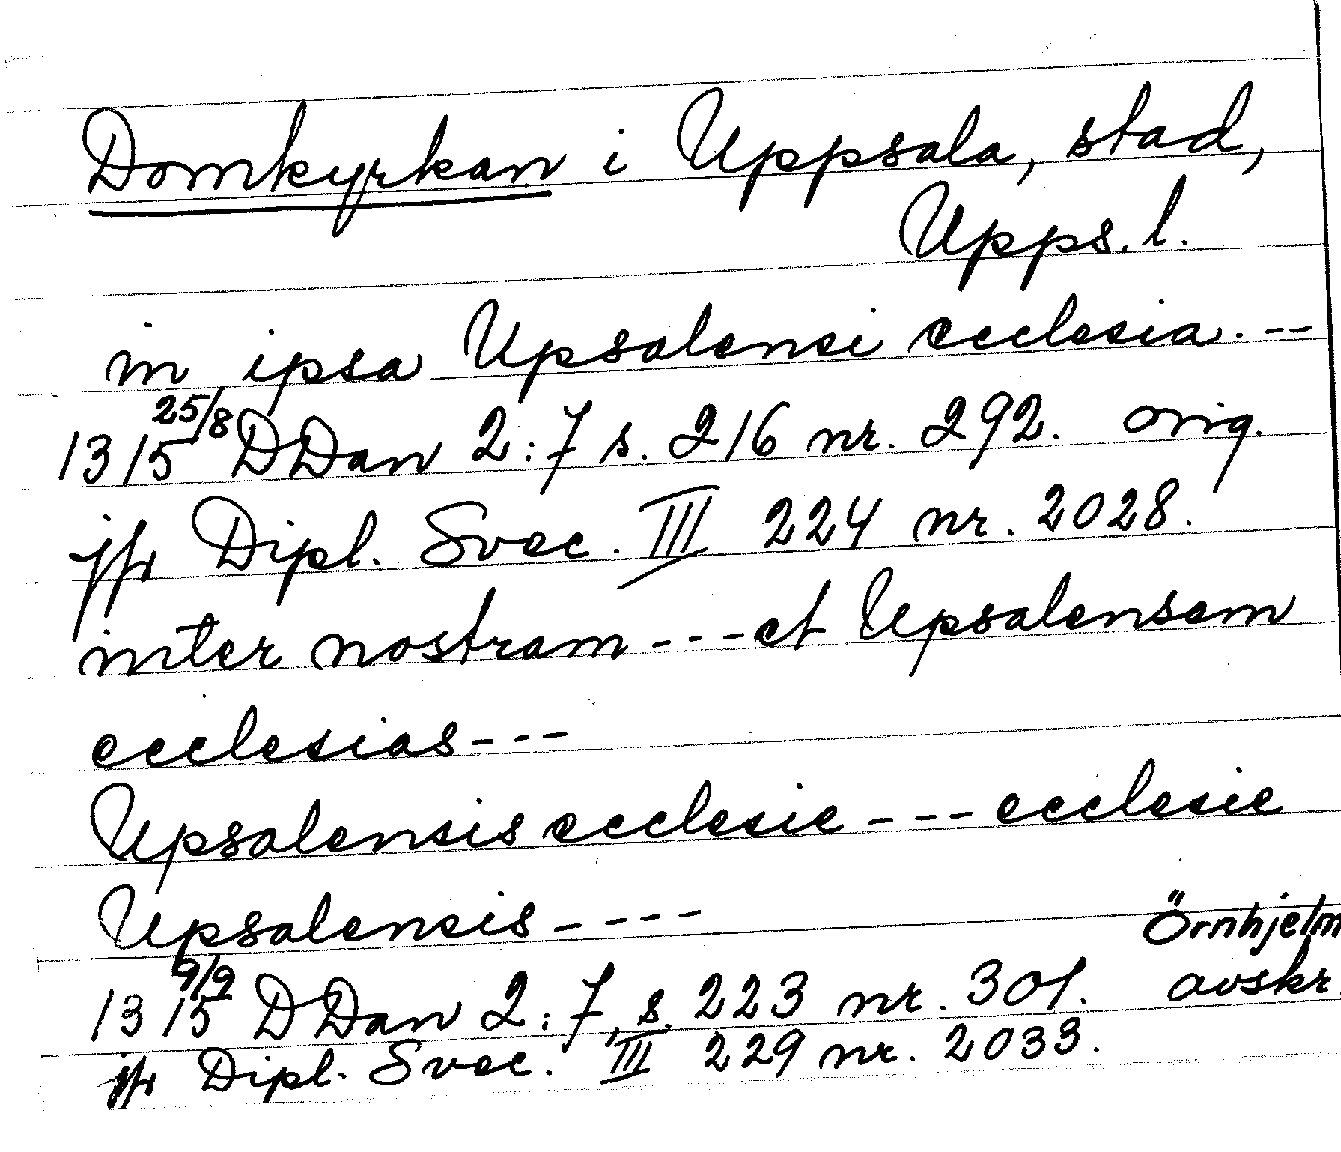 Domkyrkan i Uppsala, stad,
Upps. l.
in ipsa Upsalensi ecclesia. --
1315 25/8 DDan 2:7 s. 216 nr. 292. orig.
jfr Dipl. Svec. III 224 nr. 2028.
inter nostram --- et Upsalensem
ecclesias ---
Upsalensis ecclesie --- ecclesie
Upsalensis ----
Örnhjelm
1315 9/9 DDan 2:7, s. 223 nr. 301. avskr.
jfr Dipl. Svec. III 229 nr. 2033.